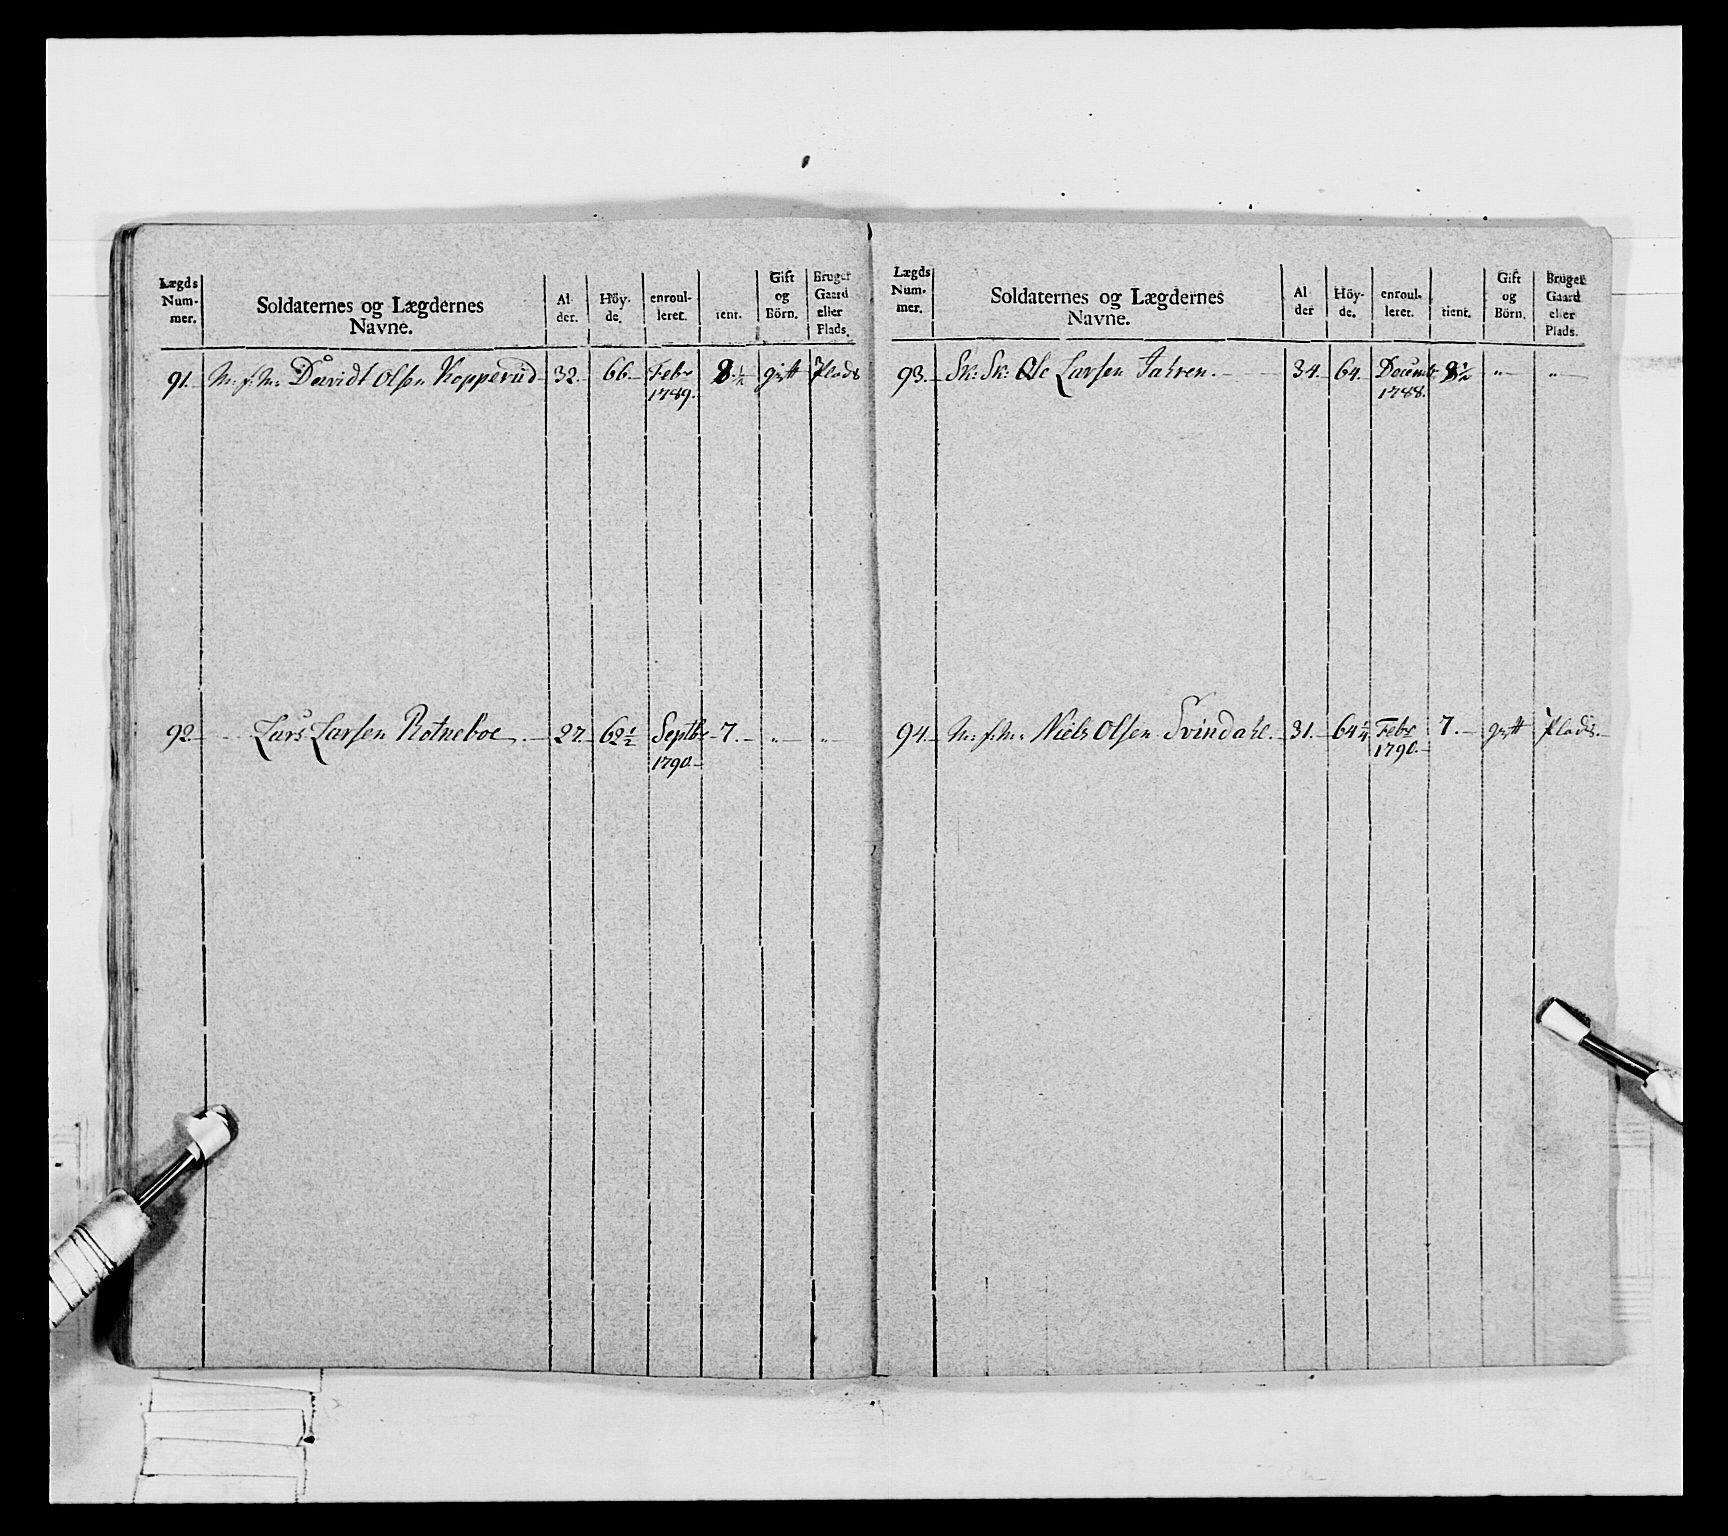 Lægds Num- mer. Soldaternes og Lægdernes Navne. Al der. Höy- de. enroul- leret. tient. Gift og Börn. Bruger Gaard eller Plads.
91. M: f: M: Davidt Olsen Kopperud 32. 66. Febr 8 ½ gift Plads
1789.
92. Lars Larsen Rotneboe 27. 62½ Septbr 7. " "
1790.
Lægds Num- mer. Soldaternes og Lægdernes Navne. Al der Höy- de. enroul- leret. tient. Gift og Börn. Bruger Gaard eller Plads.
93. Sk: Sk: Ole Larsen Jahren. 34. 64. Decembr 8½ " "
1788.
94. M: f: M: Niels Olsen Svindahl. 31. 64¼ Febr 7. gift Plads.
1790.